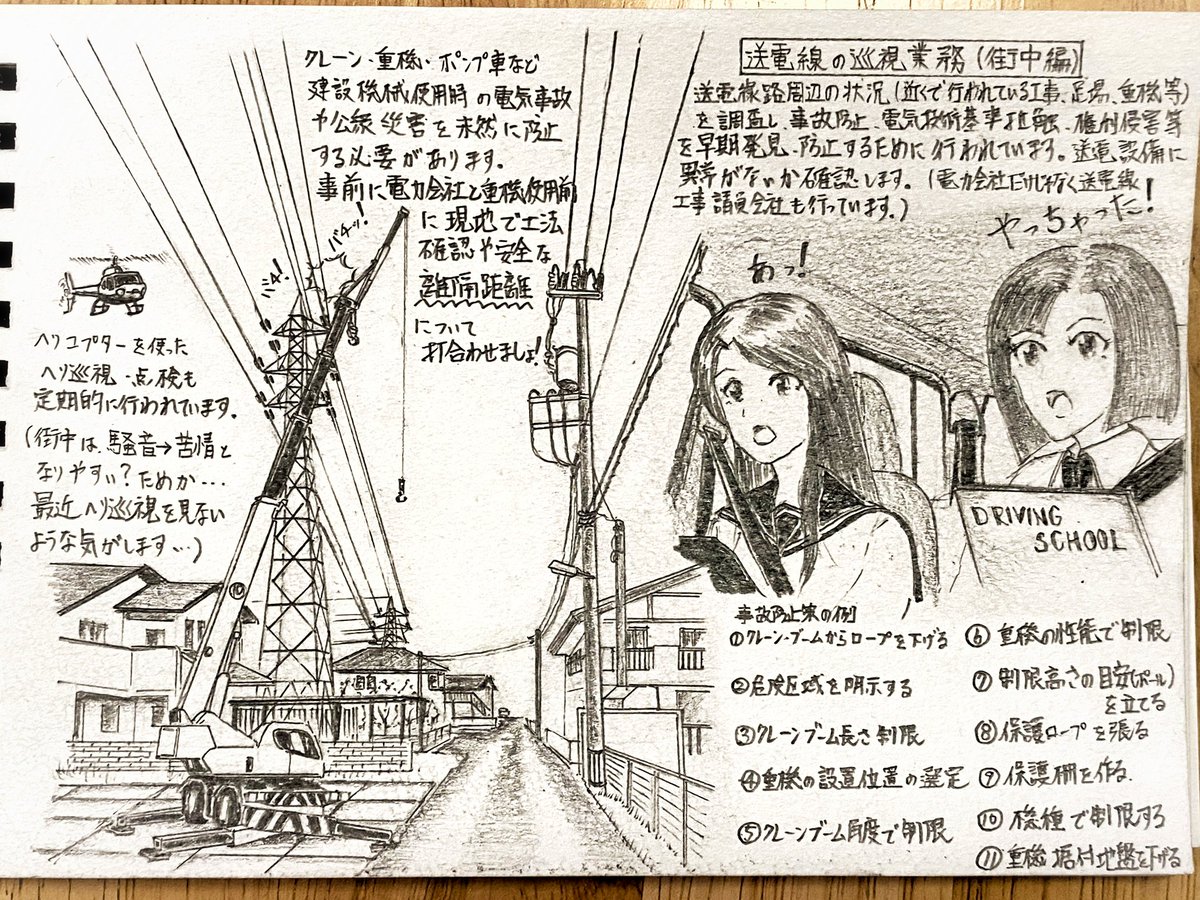 送電線の巡視業務(街中編)
送電線路周辺の状況(近くで行われている工事、足場、重機等)
を調査し、事故防止、電気技術基準抵触、権利侵害等
を早期発見、防止するために行われています。送電設備に
異常がないか確認します。(電力会社だけじゃなく送電線
工事請負会社も行っています。)
クレーン・重機・ポンプ車など
建設機械使用時の電気事故
や公衆災害を未然に防止
する必要があります。
事前に電力会社と重機使用前
に現地で工法
確認や安全な
離隔距離
について
打合わせましょ!
バチッ!
バチ!
ヘリコプターを使った
ヘリ巡視・点検も
定期的に行われています。
(街中は、騒音→苦情と
なりやすい?ためか…
最近ヘリ巡視を見ない
ような気がします…)
あっ!
やっちゃった!
DRIVING
SCHOOL
事故防止策の例
①クレーン・ブームからロープを下げる
②危険区域を明示する
③クレーンブーム長さ制限
④重機の設置位置の選定
⑤クレーンブーム角度で制限
⑥重機の性能で制限
⑦制限高さの目安(ポール)
を立てる
⑧保護ロープを張る
⑨保護柵を作る.
⑩機種で制限する
⑪重機据付地盤を下げる